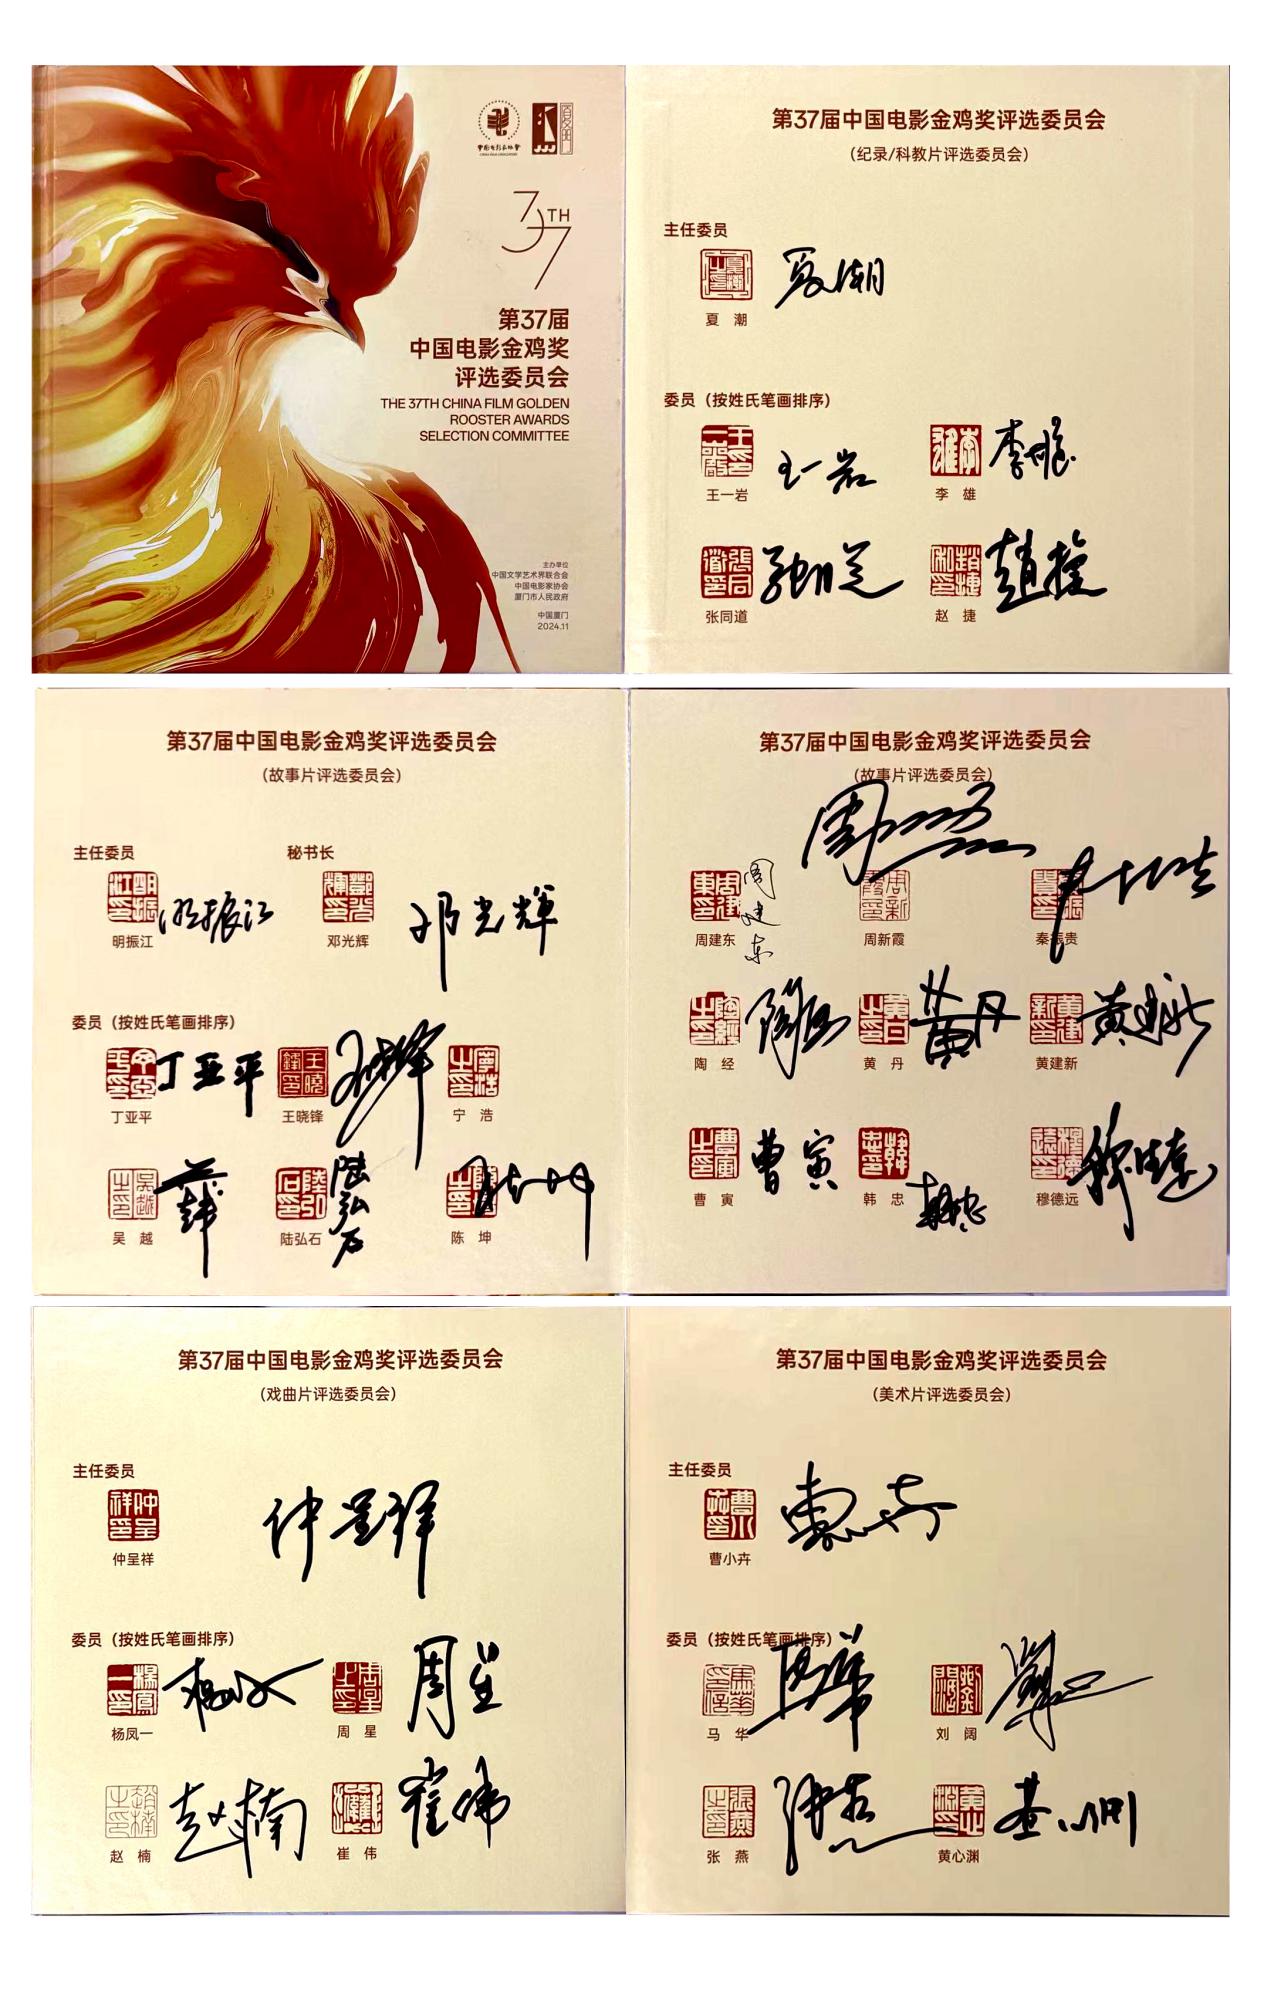 中国电影家协会
CHINA FILM ASSOCIATION
37TH
第37届
中国电影金鸡奖
评选委员会
THE 37TH CHINA FILM GOLDEN
ROOSTER AWARDS
SELECTION COMMITTEE
主办单位
中国文学艺术界联合会
中国电影家协会
厦门市人民政府
中国厦门
2024.11
第37届中国电影金鸡奖评选委员会
（纪录/科教片评选委员会）
主任委员
夏潮
夏 潮
委员（按姓氏笔画排序）
王一岩
李雄
王一岩 李 雄
张同道
赵捷
张同道 赵 捷
第37届中国电影金鸡奖评选委员会
（故事片评选委员会）
主任委员 秘书长
明振江
邓光辉
明振江 邓光辉
委员（按姓氏笔画排序）
丁亚平
丁亚平 王晓锋 宁 浩
陆弘石
吴 越 陆弘石 陈 坤
第37届中国电影金鸡奖评选委员会
（故事片评选委员会）
周建东
周建东 周新霞 秦振贵
黄丹
黄建新
陶 经 黄 丹 黄建新
曹寅
曹 寅 韩 忠 穆德远
第37届中国电影金鸡奖评选委员会
（戏曲片评选委员会）
主任委员
仲呈祥
仲呈祥
委员（按姓氏笔画排序）
周星
杨凤一 周 星
赵楠
崔伟
赵 楠 崔 伟
第37届中国电影金鸡奖评选委员会
（美术片评选委员会）
主任委员
曹小卉
委员（按姓氏笔画排序）
马华
马 华 刘 阔
黄心渊
张 燕 黄心渊